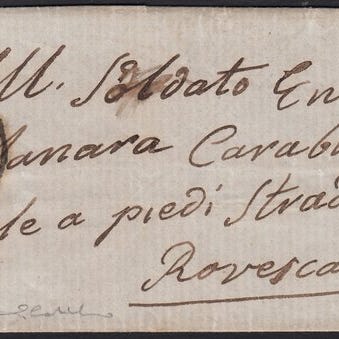 All. Soldato En
Manara Carabi
le a piedi Strad
Rovesca